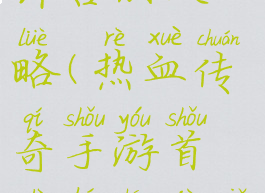 lüè rè xuè chuán
略(热血传
qí shǒu yóu shǒu
奇手游首